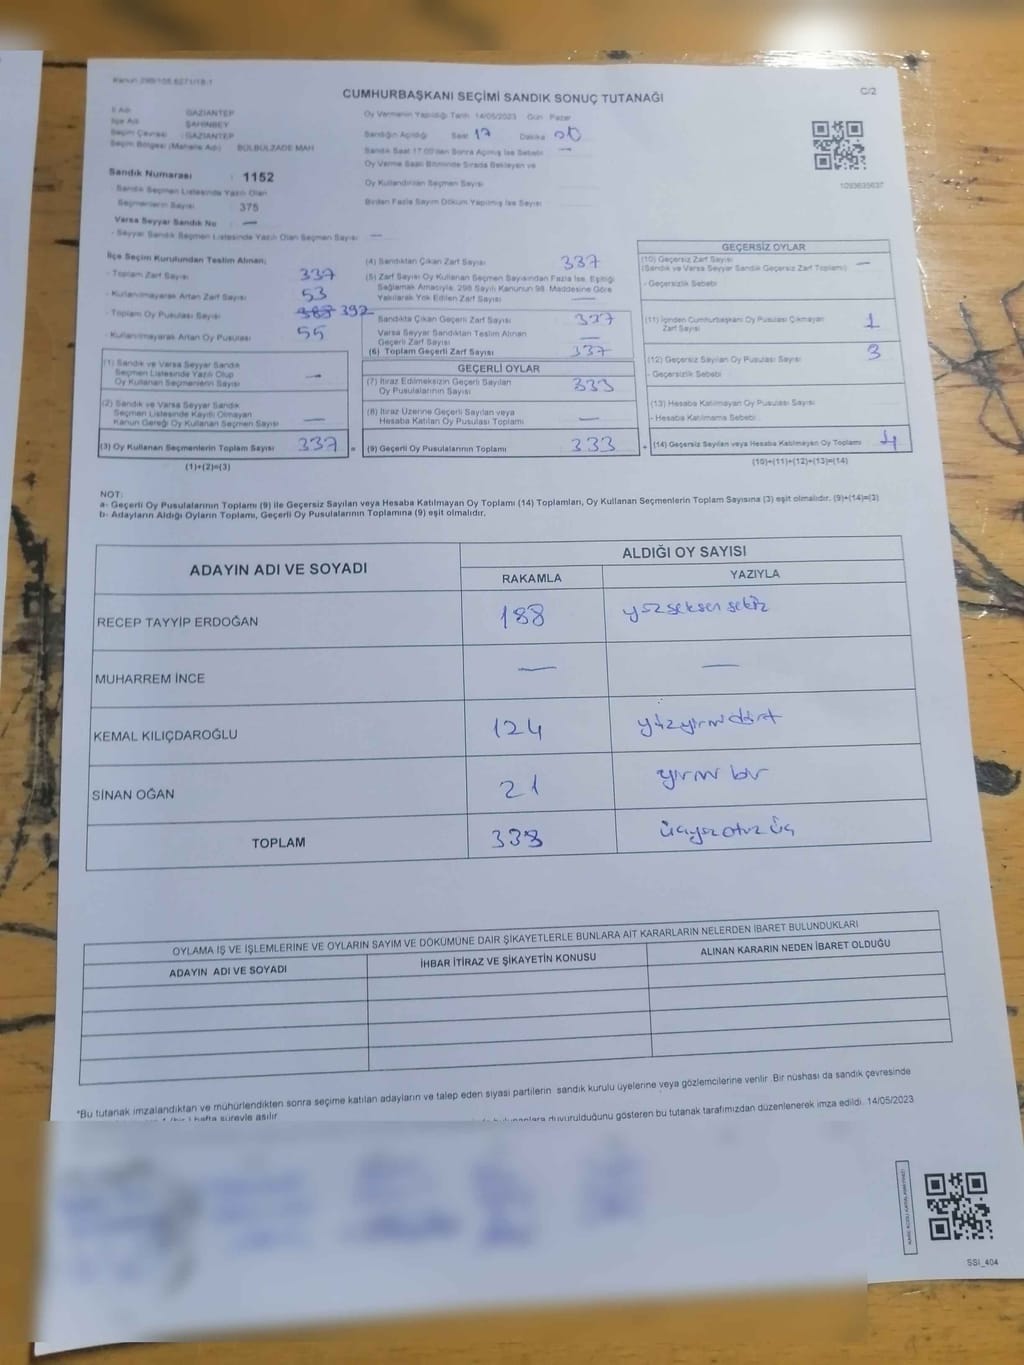 Kanun 298/105,6271/18-1
CUMHURBAŞKANI SEÇİMİ SANDIK SONUÇ TUTANAĞI
C/2
İl Adı : GAZİANTEP
İlçe Adı : ŞAHİNBEY
Seçim Çevresi : GAZİANTEP
Seçim Bölgesi (Mahalle Adı) : BÜLBÜLZADE MAH
Sandık Numarası : 1152
- Sandık Seçmen Listesinde Yazılı Olan
Seçmenlerin Sayısı 375
Varsa Seyyar Sandık No : —
- Seyyar Sandık Seçmen Listesinde Yazılı Olan Seçmen Sayısı : —
Oy Vermenin Yapıldığı Tarih 14/05/2023 Gün Pazar
Sandığın Açıldığı Saat 17 Dakika
Sandık Saat 17:00'den Sonra Açılmış İse Sebebi —
Oy Verme Saati Bitiminde Sırada Bekleyen ve
Oy Kullandırılan Seçmen Sayısı
Birden Fazla Sayım Döküm Yapılmış İse Sayısı
1093635637
İlçe Seçim Kurulundan Teslim Alınan;
- Toplam Zarf Sayısı 337
- Kullanılmayarak Artan Zarf Sayısı 53
- Toplam Oy Pusulası Sayısı 392
- Kullanılmayarak Artan Oy Pusulası 55
(1) Sandık ve Varsa Seyyar Sandık
Seçmen Listesinde Yazılı Olup
Oy Kullanan Seçmenlerin Sayısı —
(2) Sandık ve Varsa Seyyar Sandık
Seçmen Listesinde Kayıtlı Olmayan
Kanun Gereği Oy Kullanan Seçmen Sayısı —
(3) Oy Kullanan Seçmenlerin Toplam Sayısı 337 =
(1)+(2)=(3)
(4) Sandıktan Çıkan Zarf Sayısı 337
(5) Zarf Sayısı Oy Kullanan Seçmen Sayısından Fazla İse, Eşitliği
Sağlamak Amacıyla, 298 Sayılı Kanunun 98. Maddesine Göre
Yakılarak Yok Edilen Zarf Sayısı —
Sandıkta Çıkan Geçerli Zarf Sayısı 337
Varsa Seyyar Sandıktan Teslim Alınan
Geçerli Zarf Sayısı —
(6) Toplam Geçerli Zarf Sayısı 337
GEÇERLİ OYLAR
(7) İtiraz Edilmeksizin Geçerli Sayılan
Oy Pusulalarının Sayısı 333
(8) İtiraz Üzerine Geçerli Sayılan veya
Hesaba Katılan Oy Pusulası Toplamı —
(9) Geçerli Oy Pusulalarının Toplamı 333 +
GEÇERSİZ OYLAR
(10) Geçersiz Zarf Sayısı
(Sandık ve Varsa Seyyar Sandık Geçersiz Zarf Toplamı) —
- Geçersizlik Sebebi
(11) İçinden Cumhurbaşkanı Oy Pusulası Çıkmayan
Zarf Sayısı 1
(12) Geçersiz Sayılan Oy Pusulası Sayısı 3
- Geçersizlik Sebebi
(13) Hesaba Katılmayan Oy Pusulası Sayısı
- Hesaba Katılmama Sebebi
(14) Geçersiz Sayılan veya Hesaba Katılmayan Oy Toplamı 4
(10)+(11)+(12)+(13)=(14)
NOT:
a- Geçerli Oy Pusulalarının Toplamı (9) ile Geçersiz Sayılan veya Hesaba Katılmayan Oy Toplamı (14) Toplamları, Oy Kullanan Seçmenlerin Toplam Sayısına (3) eşit olmalıdır. (9)+(14)=(3)
b- Adayların Aldığı Oyların Toplamı, Geçerli Oy Pusulalarının Toplamına (9) eşit olmalıdır.
ADAYIN ADI VE SOYADI
ALDIĞI OY SAYISI
RAKAMLA YAZIYLA
RECEP TAYYİP ERDOĞAN 188 yüzseksensekiz
MUHARREM İNCE — —
KEMAL KILIÇDAROĞLU 124 yüzyirmidört
SİNAN OĞAN 21 yirmi bir
TOPLAM 333 üçyüzotuz üç
OYLAMA İŞ VE İŞLEMLERİNE VE OYLARIN SAYIM VE DÖKÜMÜNE DAİR ŞİKAYETLERLE BUNLARA AİT KARARLARIN NELERDEN İBARET BULUNDUKLARI
ADAYIN ADI VE SOYADI İHBAR İTİRAZ VE ŞİKAYETİN KONUSU ALINAN KARARIN NEDEN İBARET OLDUĞU
*Bu tutanak imzalandıktan ve mühürlendikten sonra seçime katılan adayların ve talep eden siyasi partilerin sandık kurulu üyelerine veya gözlemcilerine verilir. Bir nüshası da sandık çevresinde
hafta süreyle asılır duyurulduğunu gösteren bu tutanak tarafımızdan düzenlenerek imza edildi. 14/05/2023
SSI_404